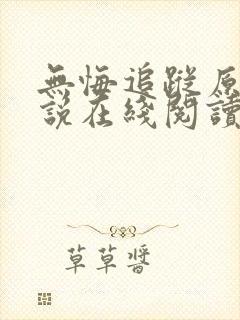 無悔追蹤原
說在綫閱讀
草草醬